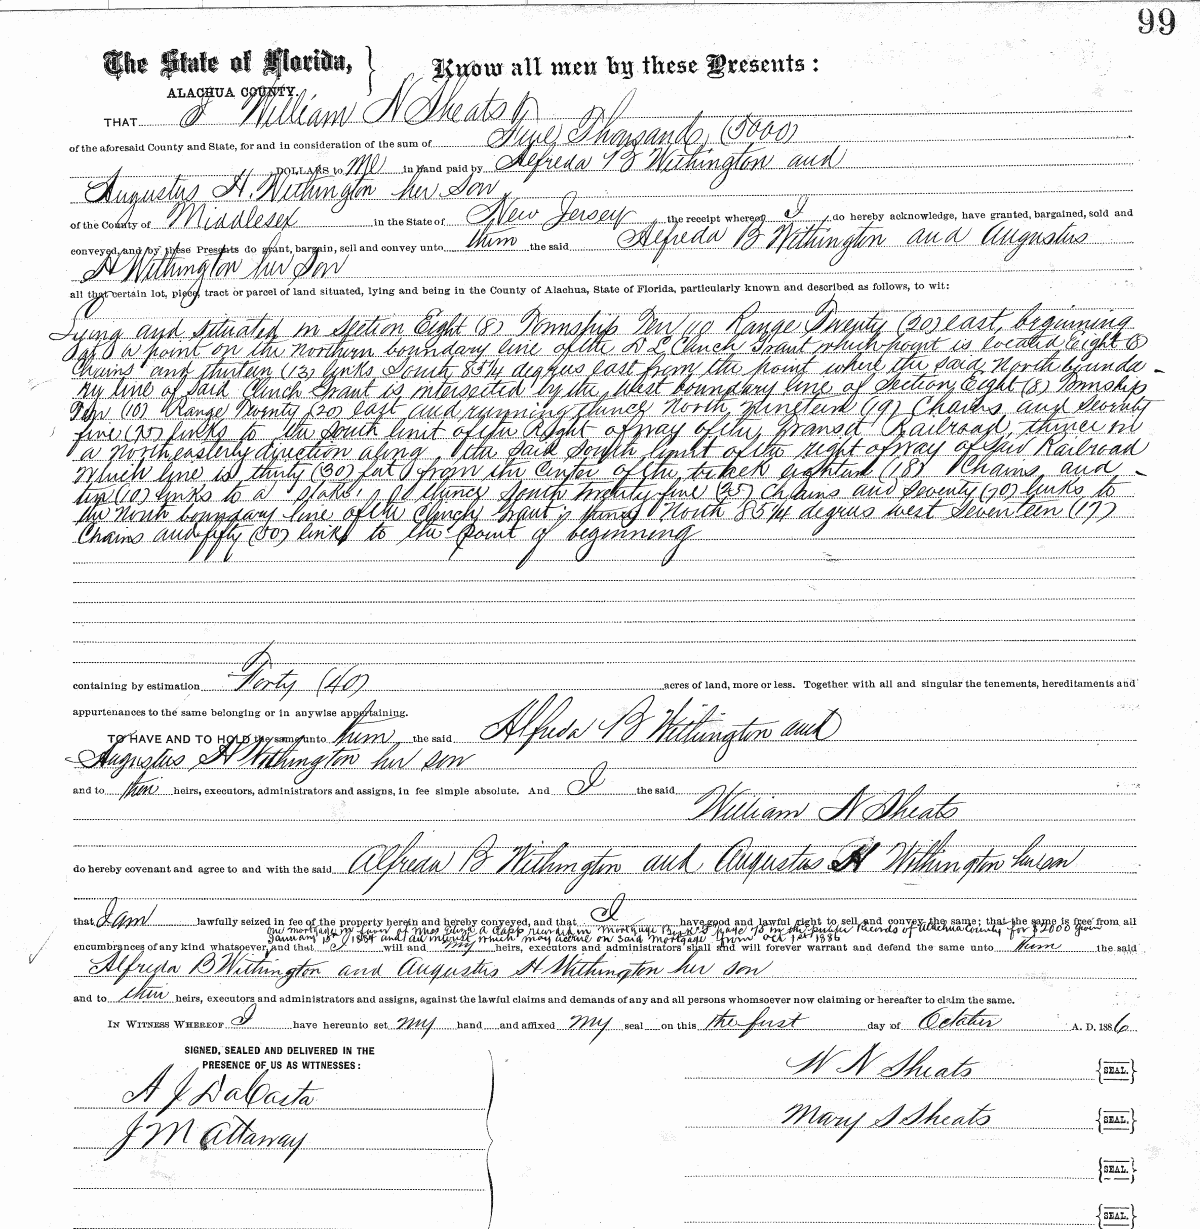 99
The State of Florida, } Know all men by these Presents:
ALACHUA COUNTY.
THAT I William N Sheats
of the aforesaid County and State, for and in consideration of the sum of Five Thousand (5000)
DOLLARS to me in hand paid by Alfreda B Withington and
Augustus H. Withington her son
of the County of Middlesex in the State of New Jersey the receipt whereof I do hereby acknowledge, have granted, bargained, sold and
conveyed, and by these Presents do grant, bargain, sell and convey unto them the said Alfreda B Withington and Augustus
H Withington her Son
all that certain lot, piece, tract or parcel of land situated, lying and being in the County of Alachua, State of Florida, particularly known and described as follows, to wit:
Lying and situated in Section Eight (8) Township Ten (10) Range Twenty (20) east, beginning
at a point on the Northern boundary line of the D L Clinch Grant which point is located Eight (8)
Chains and thirteen (13) links South 85¼ degrees east from the point where the said North bounda-
ry line of said Clinch Grant is intersected by the West boundary line of Section Eight (8) Township
Ten (10) Range Twenty (20) east and running thence North Nineteen (19) Chains and Seventy
five (75) links to the South limit of the Right of way of the Transit Railroad, thence in
a Northeasterly direction along the said South limit of the right of way of said Railroad
Which line is thirty (30) feet from the Center of the track eighteen (18) Chains and
ten (10) links to a stake, thence South twenty-five (25) chains and Seventy (70) links to
the North boundary line of the Clinch Grant, thence North 85¼ degrees west Seventeen (17)
Chains and fifty (50) links to the Point of beginning
containing by estimation Forty (40) acres of land, more or less. Together with all and singular the tenements, hereditaments and
appurtenances to the same belonging or in anywise appertaining.
TO HAVE AND TO HOLD the same unto them the said Alfreda B Withington and
Augustus H Withington her son
and to their heirs, executors, administrators and assigns, in fee simple absolute. And I the said
William N Sheats
do hereby covenant and agree to and with the said Alfreda B Withington and Augustus H Withington her son
that I am lawfully seized in fee of the property herein and hereby conveyed, and that I have good and lawful right to sell and convey the same; that the same is free from all
one mortgage in favor of Miss Eliza A Capp recorded in Mortgage Book page 75 in the public records of Alachua County for $2000 given
January 15th 1884 and all interest which may accrue on said mortgage from Oct 1st 1886
encumbrances of any kind whatsoever, and that I will and my heirs, executors and administrators shall and will forever warrant and defend the same unto them the said
Alfreda B Withington and Augustus H Withington her son
and to their heirs, executors and administrators and assigns, against the lawful claims and demands of any and all persons whomsoever now claiming or hereafter to claim the same.
IN WITNESS WHEREOF I have hereunto set my hand and affixed my seal on this the first day of October A. D. 1886
SIGNED, SEALED AND DELIVERED IN THE
PRESENCE OF US AS WITNESSES:
W N Sheats {SEAL.}
A J DaCosta
Mary S Sheats {SEAL.}
J M Attaway
{SEAL.}
{SEAL.}